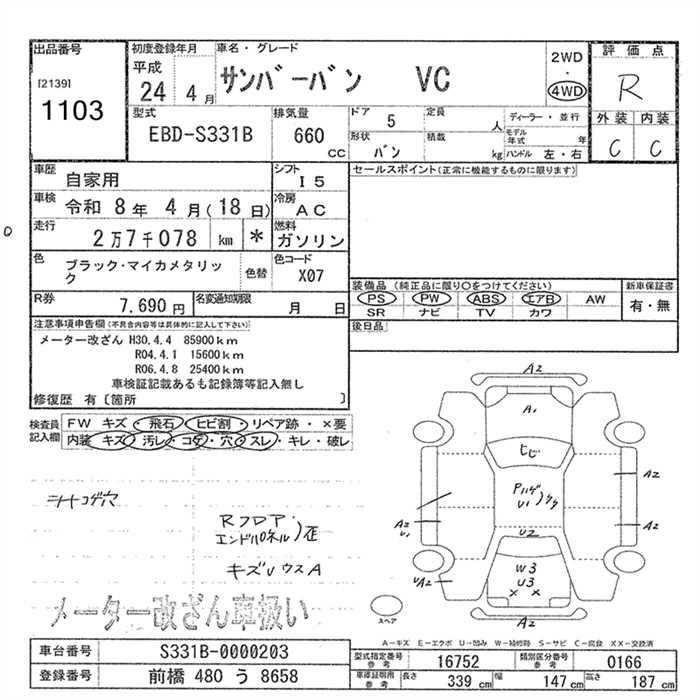 出品番号
[2139]
1103
初度登録年月
平成
24 4 月
車名・グレード
サンバーバン VC
2WD
・
4WD
評価点
R
外装 内装
C C
型式
EBD-S331B
排気量
660
CC
ドア
5
定員
人
形状
バン
積載
kg
ディーラー・並行
モデル年式 年
ハンドル 左・右
車歴
自家用
シフト
I5
車検
令和 8年 4月(18日)
冷房
AC
走行
2万7千078 km *
燃料
ガソリン
色
ブラック・マイカメタリック
色替
色コード
X07
R券
7,690円
名変通知期限
月 日
セールスポイント(正常に機能するものに限ります)
装備品 (純正品に限り○をつけてください)
新車保証書
PS PW ABS エアB AW
有・無
SR ナビ TV カワ
後日品
注意事項申告欄(不具合内容等は具体的に記入して下さい)
メーター改ざん H30.4.4 85900km
R04.4.1 15600km
R06.4.8 25400km
車検証記載あるも記録簿等記入無し
修復歴 有〔箇所 〕
検査員記入欄
FW キズ・飛石・ヒビ割・リペア跡・×要
内装 キズ・汚レ・コゲ・穴・スレ・キレ・破レ
シートコゲ穴
Rフロア
エンドパネル)歪
キズUウスA
メーター改ざん車扱い
A2
A1
ヒビ
Pハゲ
U1
A2
A2
U1
A2
U2
W3
U3
× ×
UA2
A2
スペア
A-キズ E-エクボ U-凹み W-補修跡 S-サビ C-腐食 XX-交換済
車台番号
S331B-0000203
登録番号
前橋 480 う 8658
型式指定番号
参考
16752
類別区分番号
参考
0166
車庫証明用
参考
長さ
339 cm
幅
147 cm
高さ
187 cm